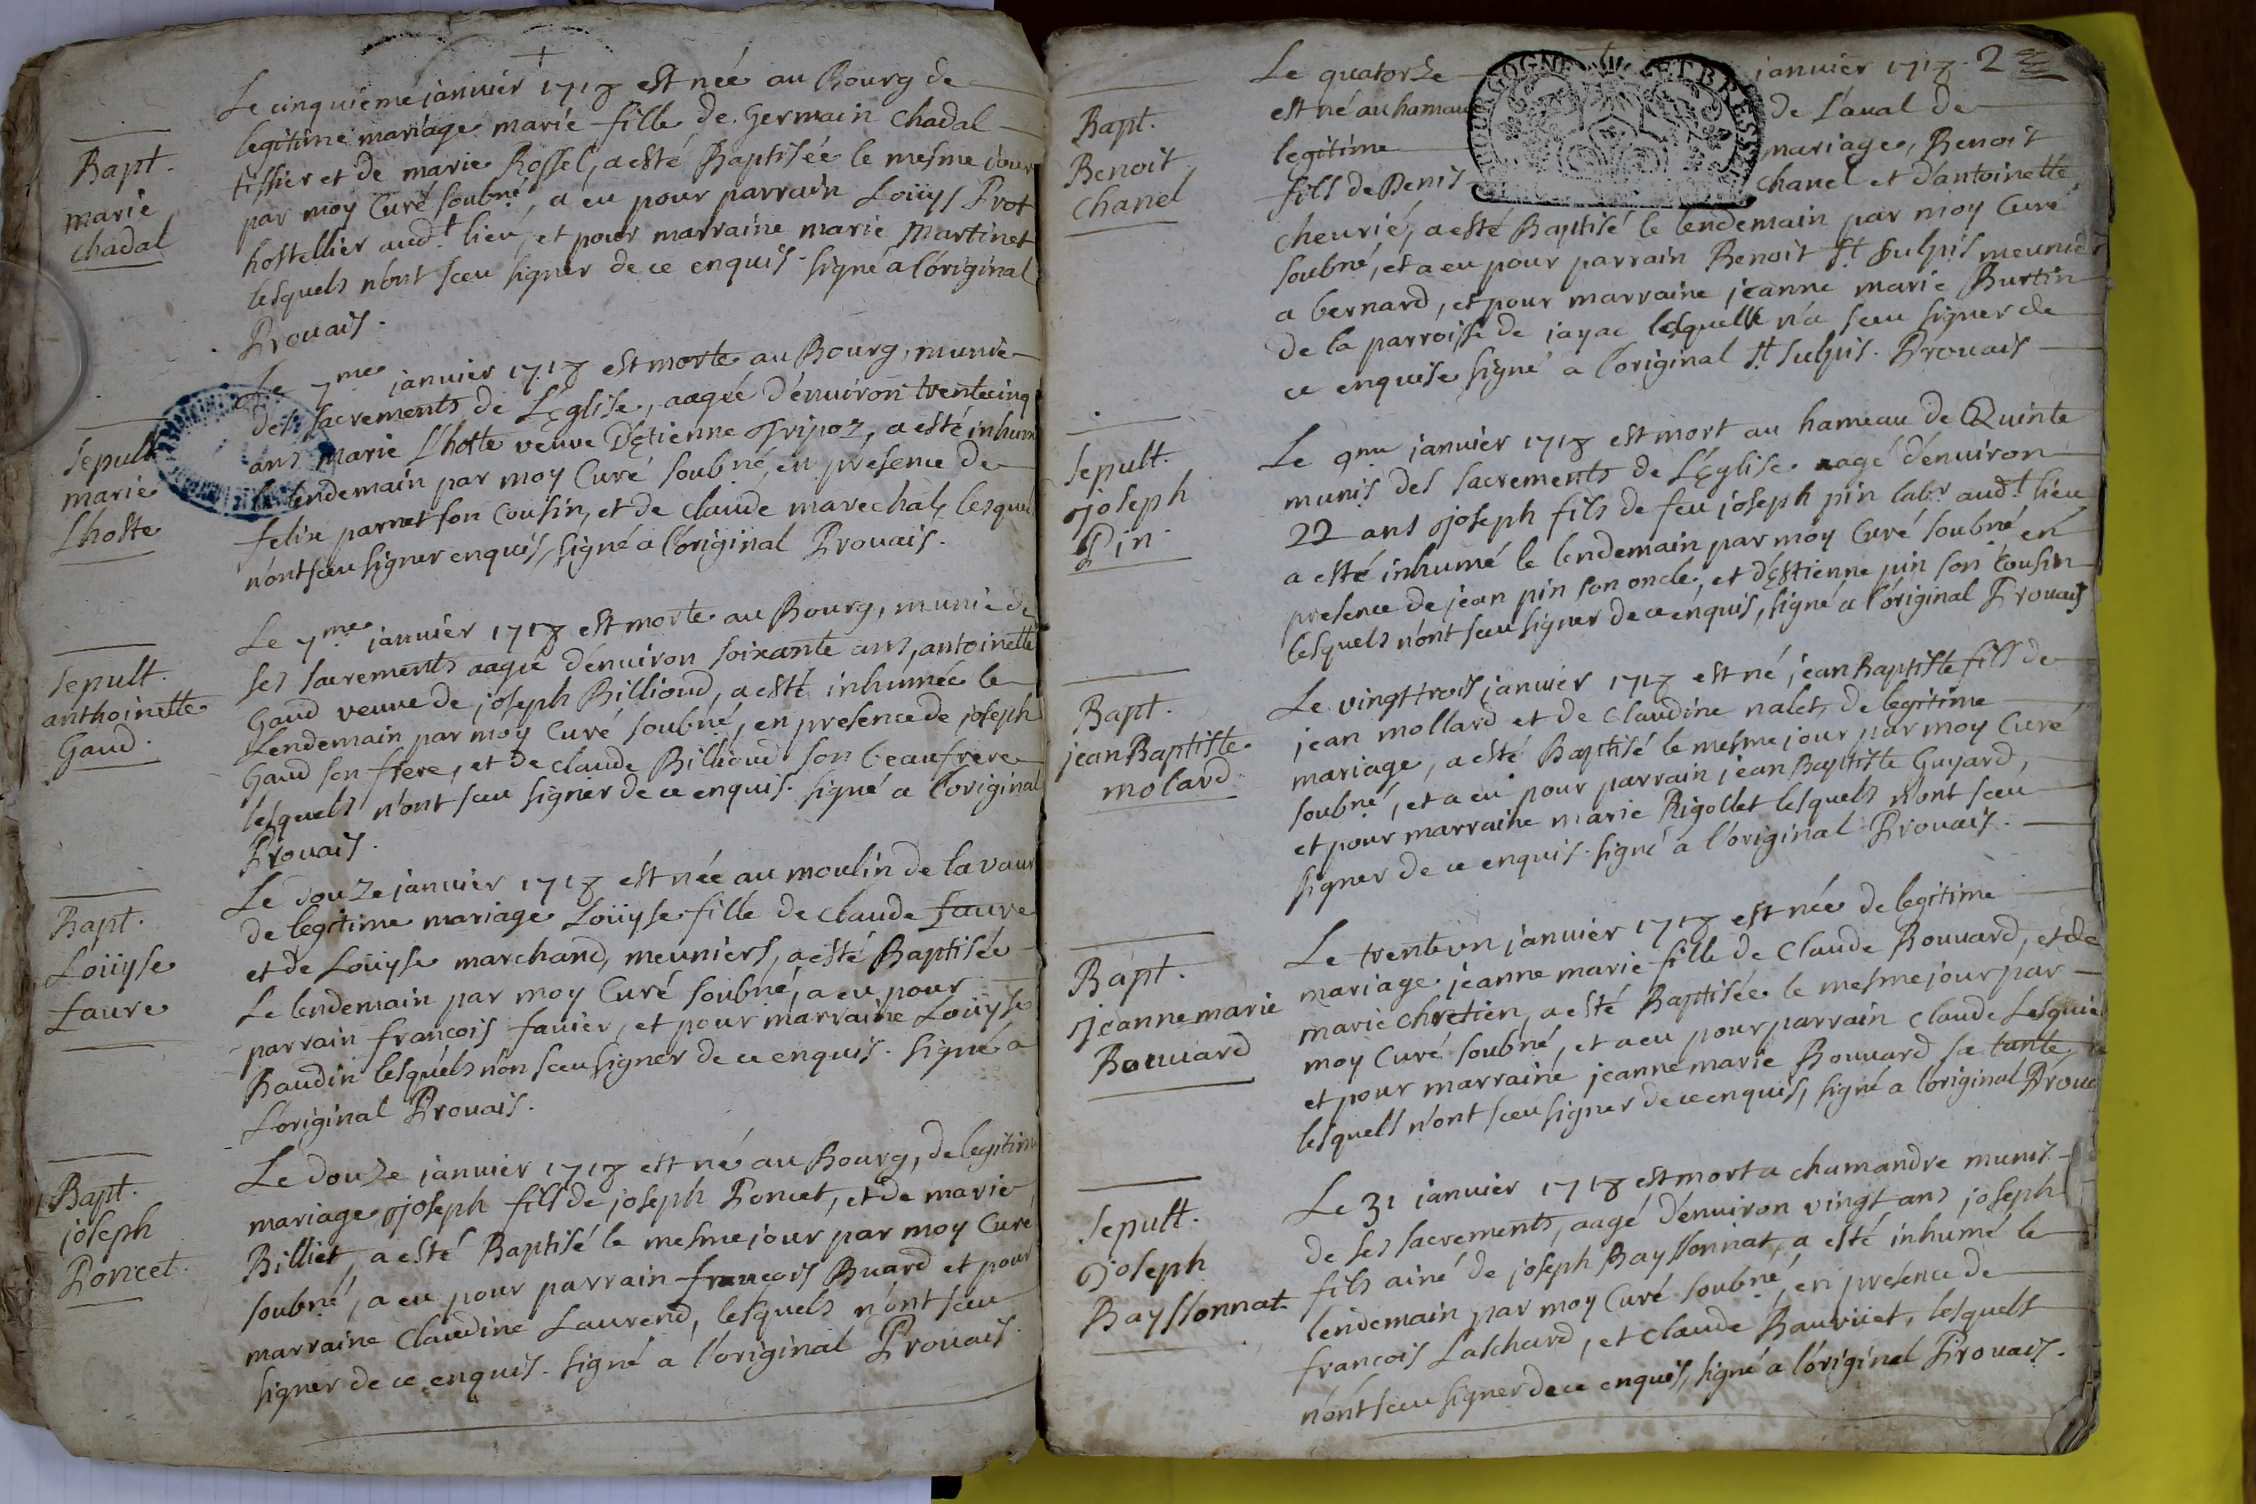 Bapt.
marie
chadal
Le cinquieme januier 1718 est née au Bourg de
legitime mariage marie fille de Germain Chadal
tissier et de marie Rossel, a esté Baptisée le mesme jour
par moy Curé soubné, a eu pour parrain Loüys Prot
hostellier aud.t lieu, et pour marraine marie Martinet
lesquels n'ont sceu signer de ce enquis. signé a l'original
Prouais.
Sepult
marie
Lhoste
Le 7me januier 1718 est morte au Bourg, munie
des sacrements de L'Eglise, aagée d'enuiron trentecinq
ans marie Lhoste veuve D'Etienne Tripoz, a esté inhum
le lendemain par moy Curé soubné, en presence de
felix parnet son Cousin, et de claude marechal, lesque
n'ont sceu signer enquis, signé a l'original Prouais.
Sepult.
anthoinette
Gaud.
Le 7me januier 1718 est morte au Bourg, munie de
ses sacrements aagée d'enuiron soixante ans, antoinette
Gaud veuve de joseph Billioud, a esté inhumée le
Lendemain par moy Curé soubné, en presence de joseph
Gaud son frere, et de claude Billioud son beaufrere
lesquels n'ont sceu signer de ce enquis. signé a l'original
Prouais.
Bapt.
Loüyse
faure
Le douze januier 1718 est née au moulin de lavaur
de legitime mariage Loüyse fille de claude faure
et de Loüyse marchand, meuniers, a esté Baptisée
Le lendemain par moy Curé soubné, a eu pour
parrain francois fauier, et pour marraine Loüyse
Baudin lesquels n'on sceu signer de ce enquis. signé a
L'original Prouais.
Bapt.
joseph
Poncet.
Le douze januier 1718 est né au Bourg, de legitim
mariage joseph fils de joseph Poncet, et de marie
Billiet, a esté Baptisé le mesme jour par moy Curé
soubné, a eu pour parrain francois Buard et pour
marraine Claudine Laurend, lesquels n'ont sceu
signer de ce enquis. signé a l'original Prouais.
2
BOURGOGNE ET BRESSE
Bapt.
Benoit
Chanel
Le quatorze januier 1718.
est né au hameau de Laual de
legitime mariage, Benoit
fils de Denis Chanel et d'antoinette
cheurié, a esté Baptisé le lendemain par moy Curé
soubné, et a eu pour parrain Benoit St Sulpis meunier
a bernard, et pour marraine jeanne marie Burtin
de la parroisse de jayac lesquelle n'a sceu signer de
ce enquise signé a l'original St Sulpis. Prouais
Sepult.
joseph
Pin.
Le 9me januier 1718 est mort au hameau de Quinte
munis des sacrements de L'Eglise aagé d'enuiron
22 ans joseph fils de feu joseph pin lab.r aud.t lieu
a esté inhumé le lendemain par moy Curé soubné en
presence de jean pin son oncle, et d'Estienne pin son Cousin
lesquels n'ont sceu signer de ce enquis, signé a l'original Prouais
Bapt.
jean Baptiste
molard
Le vingt trois januier 1718 est né jean Baptiste fils de
jean mollard et de Claudine nalet, de legitime
mariage, a esté Baptisé le mesme jour par moy Curé
soubné, et a eu pour parrain jean Baptiste Guyard,
et pour marraine marie Rigollet lesquels n'ont sceu
signer de ce enquis. signé a l'original Prouais.
Bapt.
Jeanne marie
Bouuard
Le trente un januier 1718 est née de legitime
mariage jeanne marie fille de Claude Bouuard, et de
marie chretien, a esté Baptisée le mesme jour par
moy Curé soubné, et a eu pour parrain claude
et pour marraine jeanne marie Bouuard sa tante,
lesquels n'ont sceu signer de ce enquis, signé a l'original Proua
Sepult.
joseph
Bayssonnat
Le 31 januier 1718 est mort a chamandre munis
de ses sacrements, aagé d'enuiron vingt ans joseph
fils ainé de joseph Bayssonnat, a esté inhumé le
lendemain par moy Curé soubné, en presence de
francois Laschard, et claude lesquels
n'ont sceu signer de ce enquis, signé a l'original Prouais.